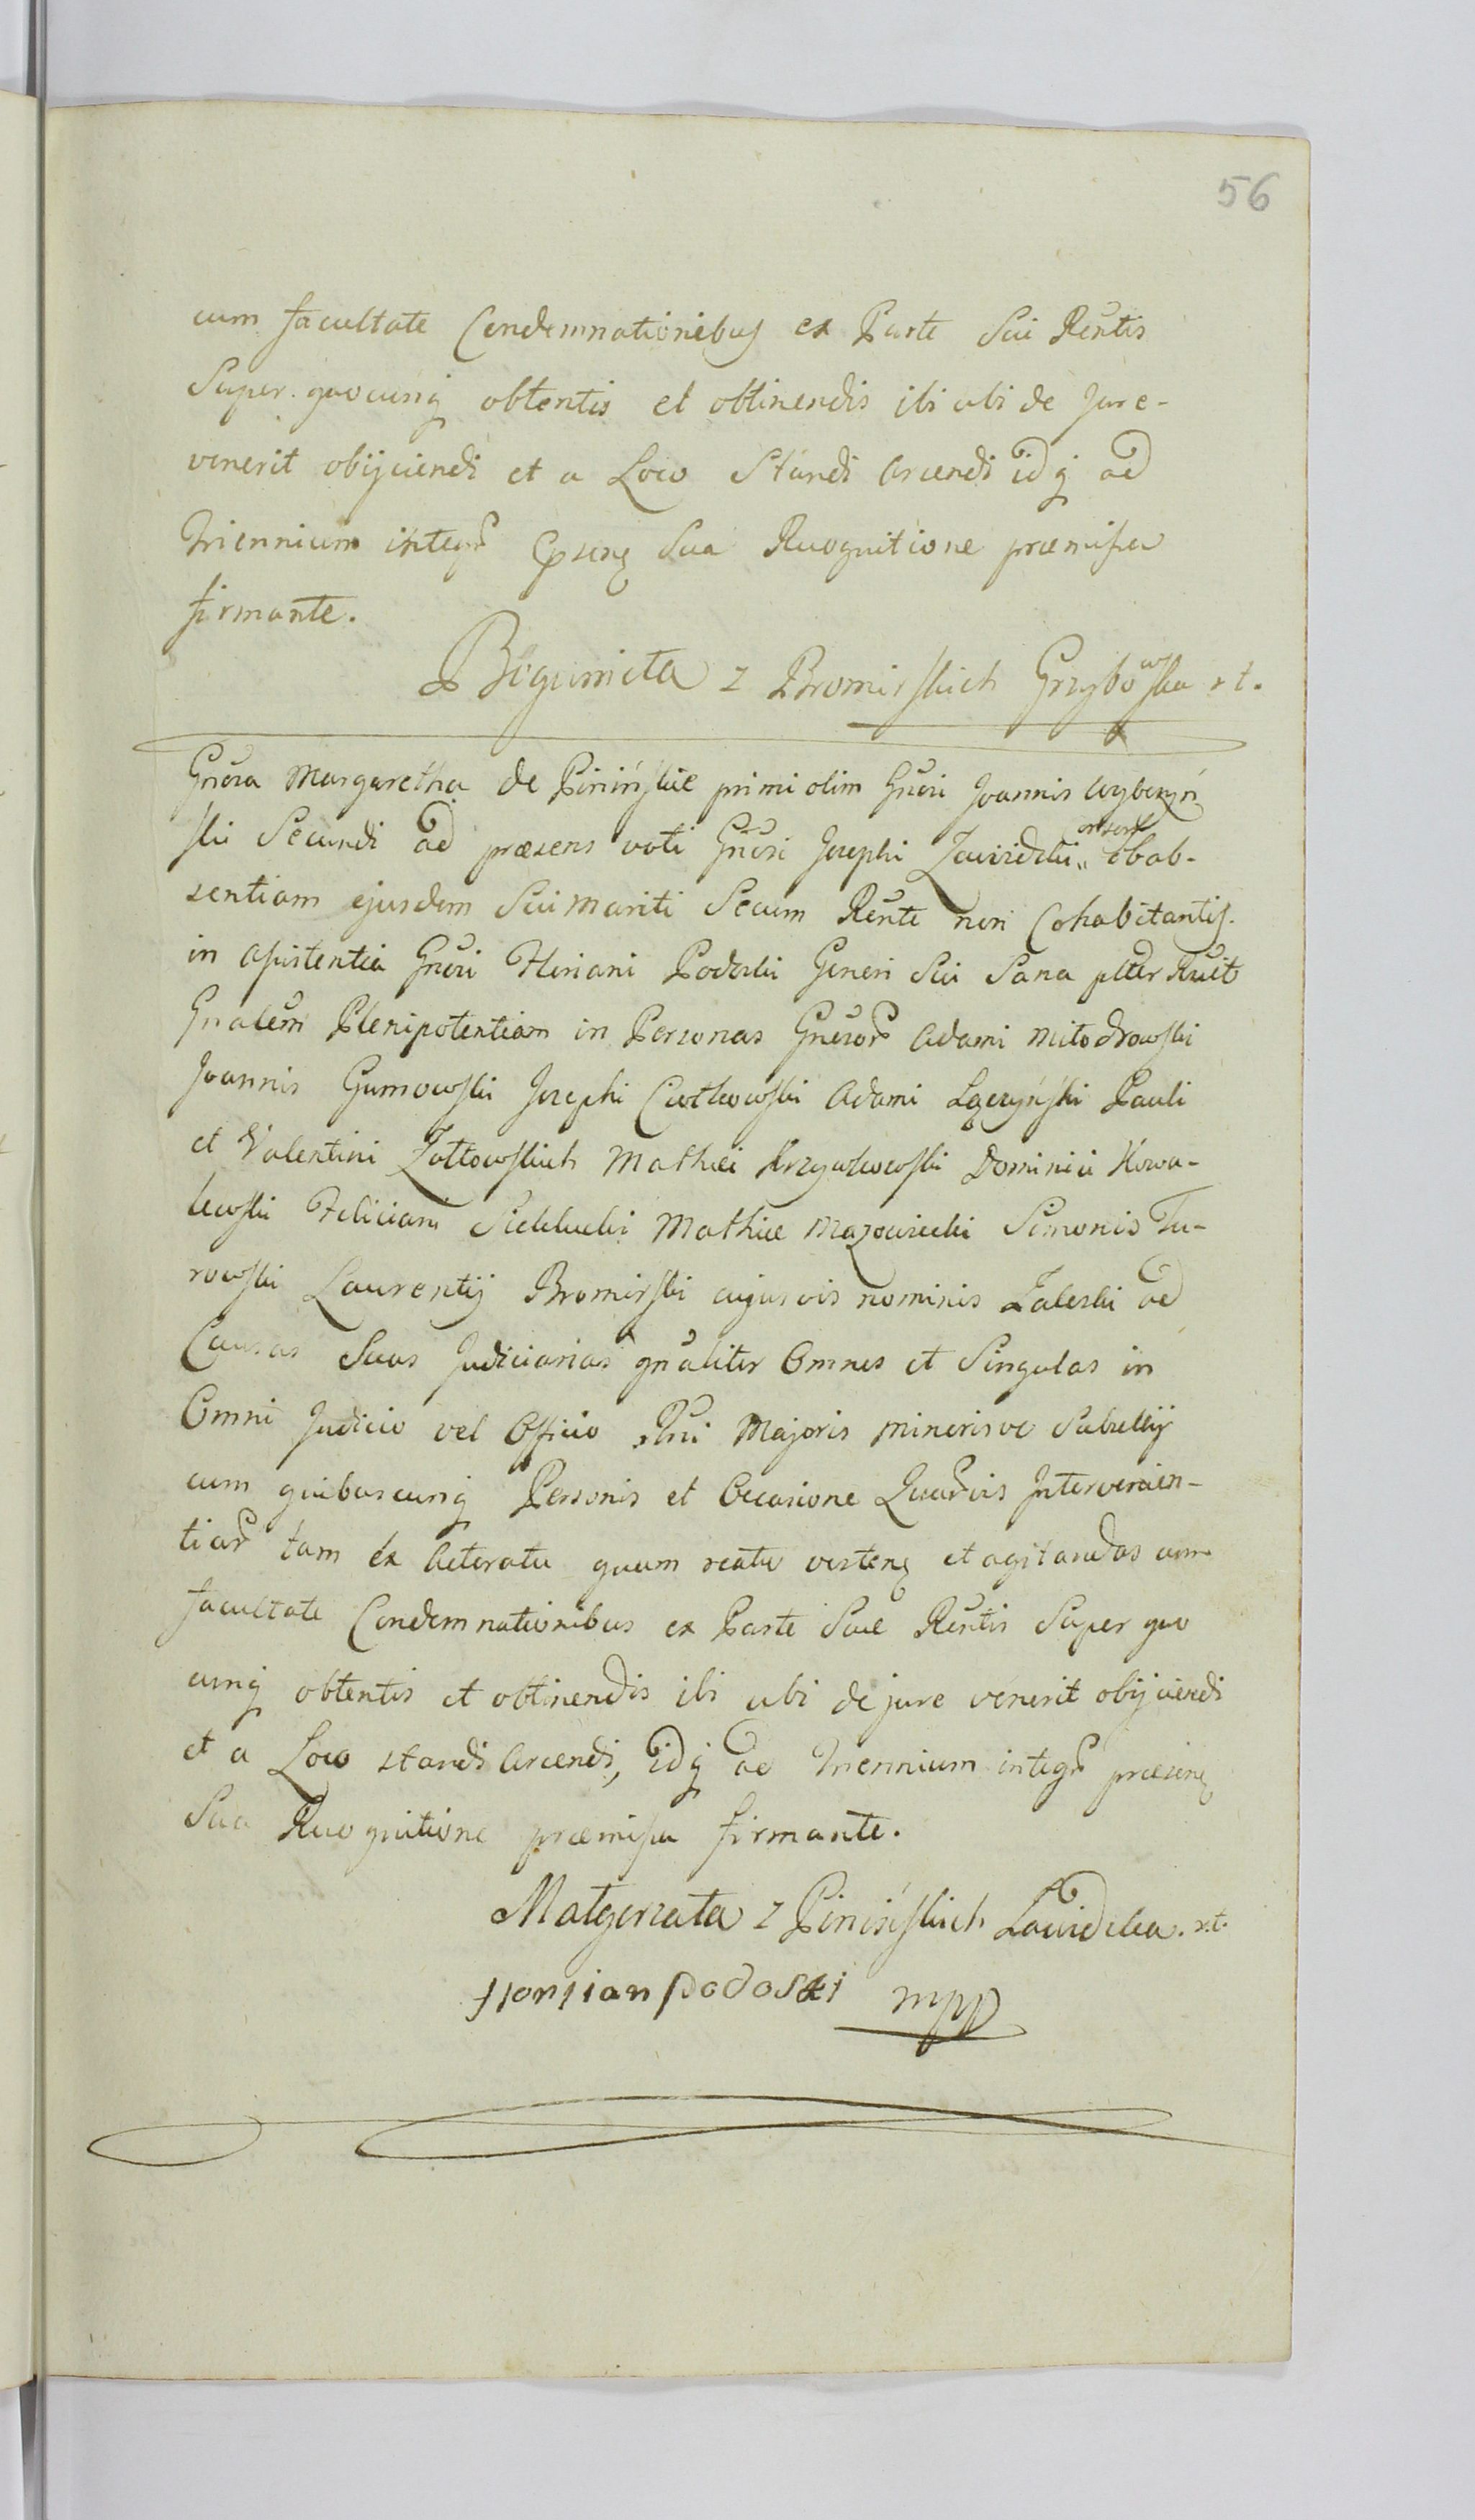 56
cum facultate Condemnationibus ex Parte Sui Rentis
Super quocunq obtentis et obtinendis ibi ubi de Jure-
venerit obijciendi et a Loco Standi Arcendi idq ad
Triennium integr Sua Recognitione præmissa
firmante.
Bogumiła z Bromirskich Grzybowska r t.
Gnosa Margaretha de Pininskie primi olim Gnosi Joannis Wybczyń
ski Secundi ad præsens voti Gnosi Josephi Zawidzki consors Obab-
sentiam ejusdem Sui mariti Secum Rente non Cohabitantis.
in Assistentia Gnosi Floriani Podoski Generi Sui Sana plter Recit
Gnalem Plenipotentiam in Personas Gnosor Adami Mitodrowski
Joannis Gumowski Josephi Adami Łączyński Pauli
et Valentini Żółtowskich Mathiei Dominici Kowa-
lewski Feliciani Mathiæ Mazowiecki Simonis Tu-
rowski Laurentij Bromirski cujusvis nominis Zaleski ad
Causas Suas Judiciarias gnaliter Omnes et Singulas in
Omni Judicio vel Officio Rni Majoris Minorisve Subsellij
cum quibuscunq Personis et Occasione Quarvis Intervenien-
tiar tam ex Actoratu quam reatu verten et agitandas cum
facultate Condemnationibus ex Parte Suæ Rentis Super quo
cunq obtentis et obtinendis ibi ubi de jure venerit obijciendi
et a Loco standi Arcendi, idq ad Triennium integr præsen
Sua Recognitione præmissa firmante.
Małgorzata z Pinińskich Zawidzka. r.t.
Florjian Podoski mpp